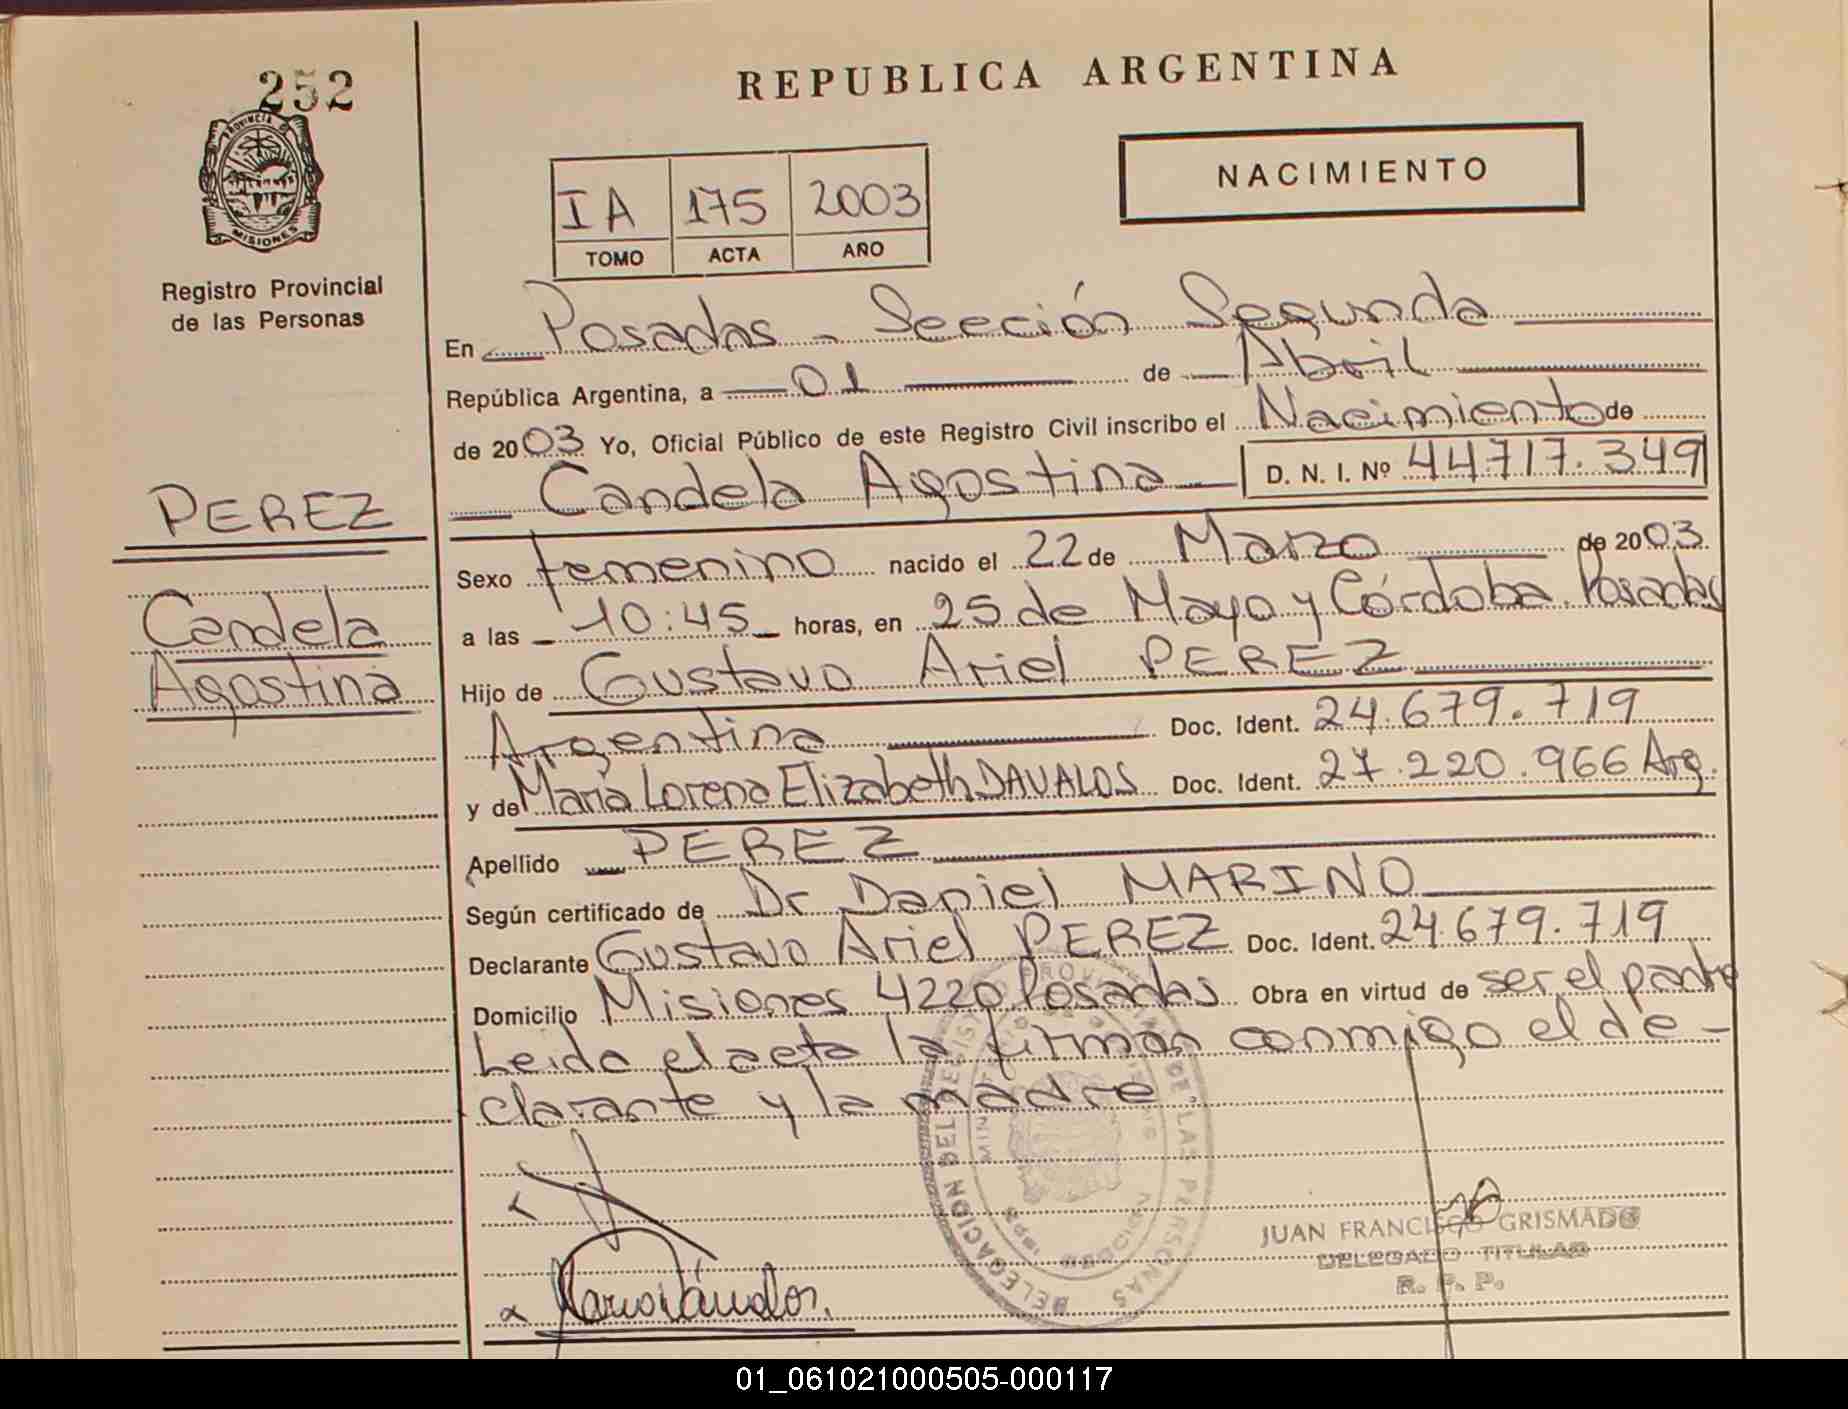 252
PROVINCIA DE
MISIONES
Registro Provincial
de las Personas
REPUBLICA ARGENTINA
NACIMIENTO
IA 175 2003
TOMO ACTA AÑO
En Posadas - Sección Segunda
República Argentina, a 01 de Abril
de 2003 Yo, Oficial Público de este Registro Civil inscribo el Nacimiento de
Candela Agostina D. N. I. Nº 44717.349
PEREZ
Candela
Agostina
Sexo femenino nacido el 22 de Marzo de 2003
a las 10:45 horas, en 25 de Mayo y Córdoba. Posadas
Hijo de Gustavo Ariel PEREZ
Argentina Doc. Ident. 24.679.719
y de María Lorena Elizabeth DAVALOS Doc. Ident. 27.220.966 Arg.
Apellido PEREZ
Según certificado de Dr Daniel MARINO
Declarante Gustavo Ariel PEREZ Doc. Ident. 24.679.719
Domicilio Misiones 4220 Posadas Obra en virtud de ser el padre
Leida el acta la firman conmigo el de-
clarante y la madre
DELEGACION DEL REGISTRO PROVINCIAL DE LAS PERSONAS
JUAN FRANCISCO GRISMADO
DELEGADO TITULAR
R. P. P.
01_061021000505-000117